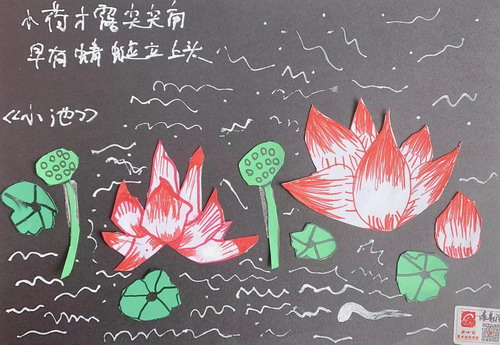 小荷才露尖尖角
早有蜻蜓立上头
《小池》